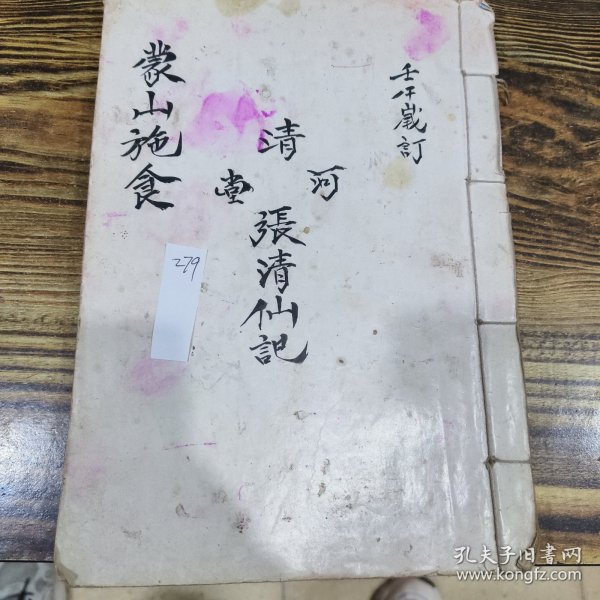 壬午歲訂
清河堂
張清仙記
蒙山施食
279
孔夫子旧書网
www.kongfz.com